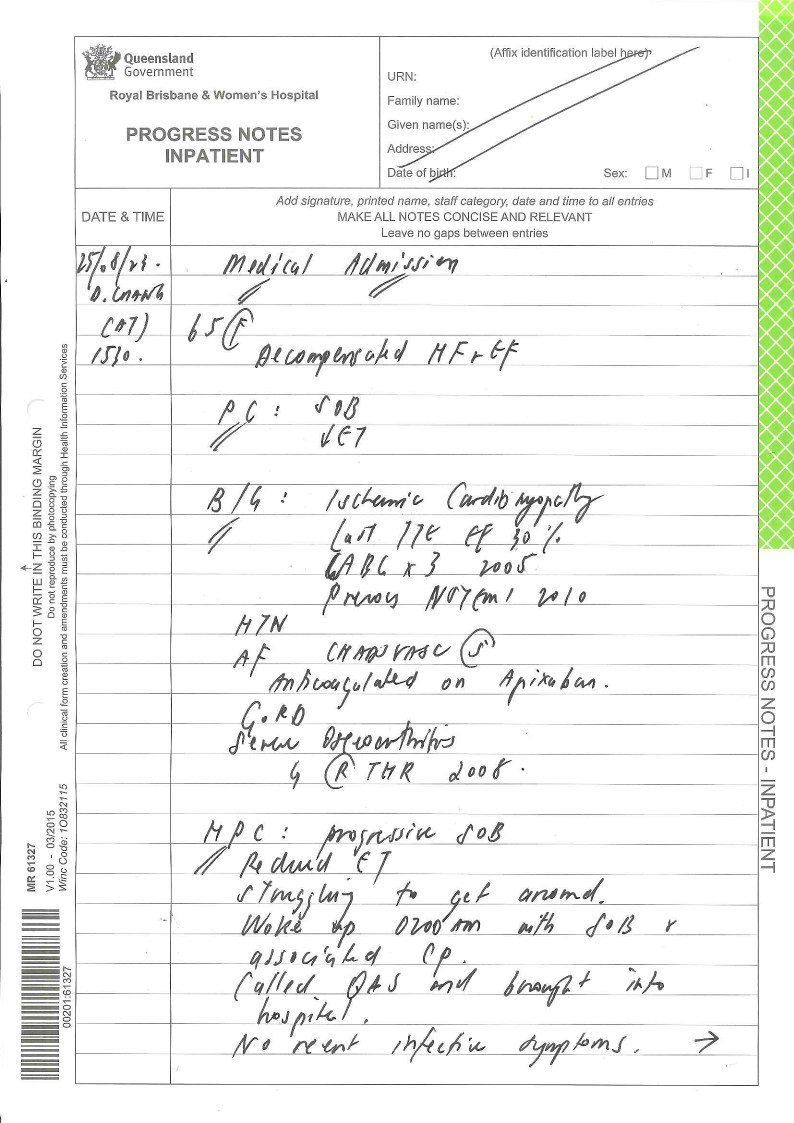 Queensland
Government
Royal Brisbane & Women's Hospital
PROGRESS NOTES
INPATIENT
(Affix identification label here)
URN:
Family name:
Given name(s):
Address:
Date of birth:
Sex: M F I
DATE & TIME
Add signature, printed name, staff category, date and time to all entries
MAKE ALL NOTES CONCISE AND RELEVANT
Leave no gaps between entries
25/08/23.
D. CHANG
(AT)
1530.
Medical Admission
65 F
Decompensated HFrEF
PC: SOB
↓ET
B/G: Ischemic Cardiomyopathy
Last TTE EF 30%
CABG x 3 2005
Previous NSTEMI 2010
HTN
AF CHADSVASC 5
Anticoagulated on Apixaban.
GORD
Severe Osteoarthritis
↳ R THR 2008.
HPC: progressive SOB
Reduced ET
Struggling to get around.
Woke up 0200 AM with SOB +
associated CP.
Called QAS and brought into
hospital.
No recent infective symptoms. →
DO NOT WRITE IN THIS BINDING MARGIN
Do not reproduce by photocopying
All clinical form creation and amendments must be conducted through Health Information Services
MR 61327
V1.00 - 03/2015
Winc Code: 1O832115
00201:61327
PROGRESS NOTES - INPATIENT